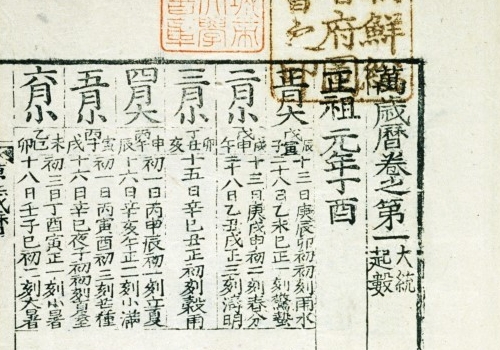 鮮
府
書之
大學
書章
萬歲曆卷之第一 大統
起數
正祖元年丁酉
正月大
戊寅
辰十三日庚辰卯初初刻雨水
子二十八日乙未巳正一刻驚蟄
二月小
戊申
戌十三日庚戌申初二刻春分
午二十八日乙丑戌正三刻淸明
三月小
丑十五日辛巳丑正初刻穀雨
亥
四月大
丙午
申初一日丙申辰初一刻立夏
辰十六日辛亥午正二刻小滿
五月小
丙子
寅初一日丙寅酉初三刻芒種
戌十六日辛巳夜子初初刻夏至
六月小
乙巳
未初三日丁酉寅正一刻小暑
卯十八日壬子巳初一刻大暑